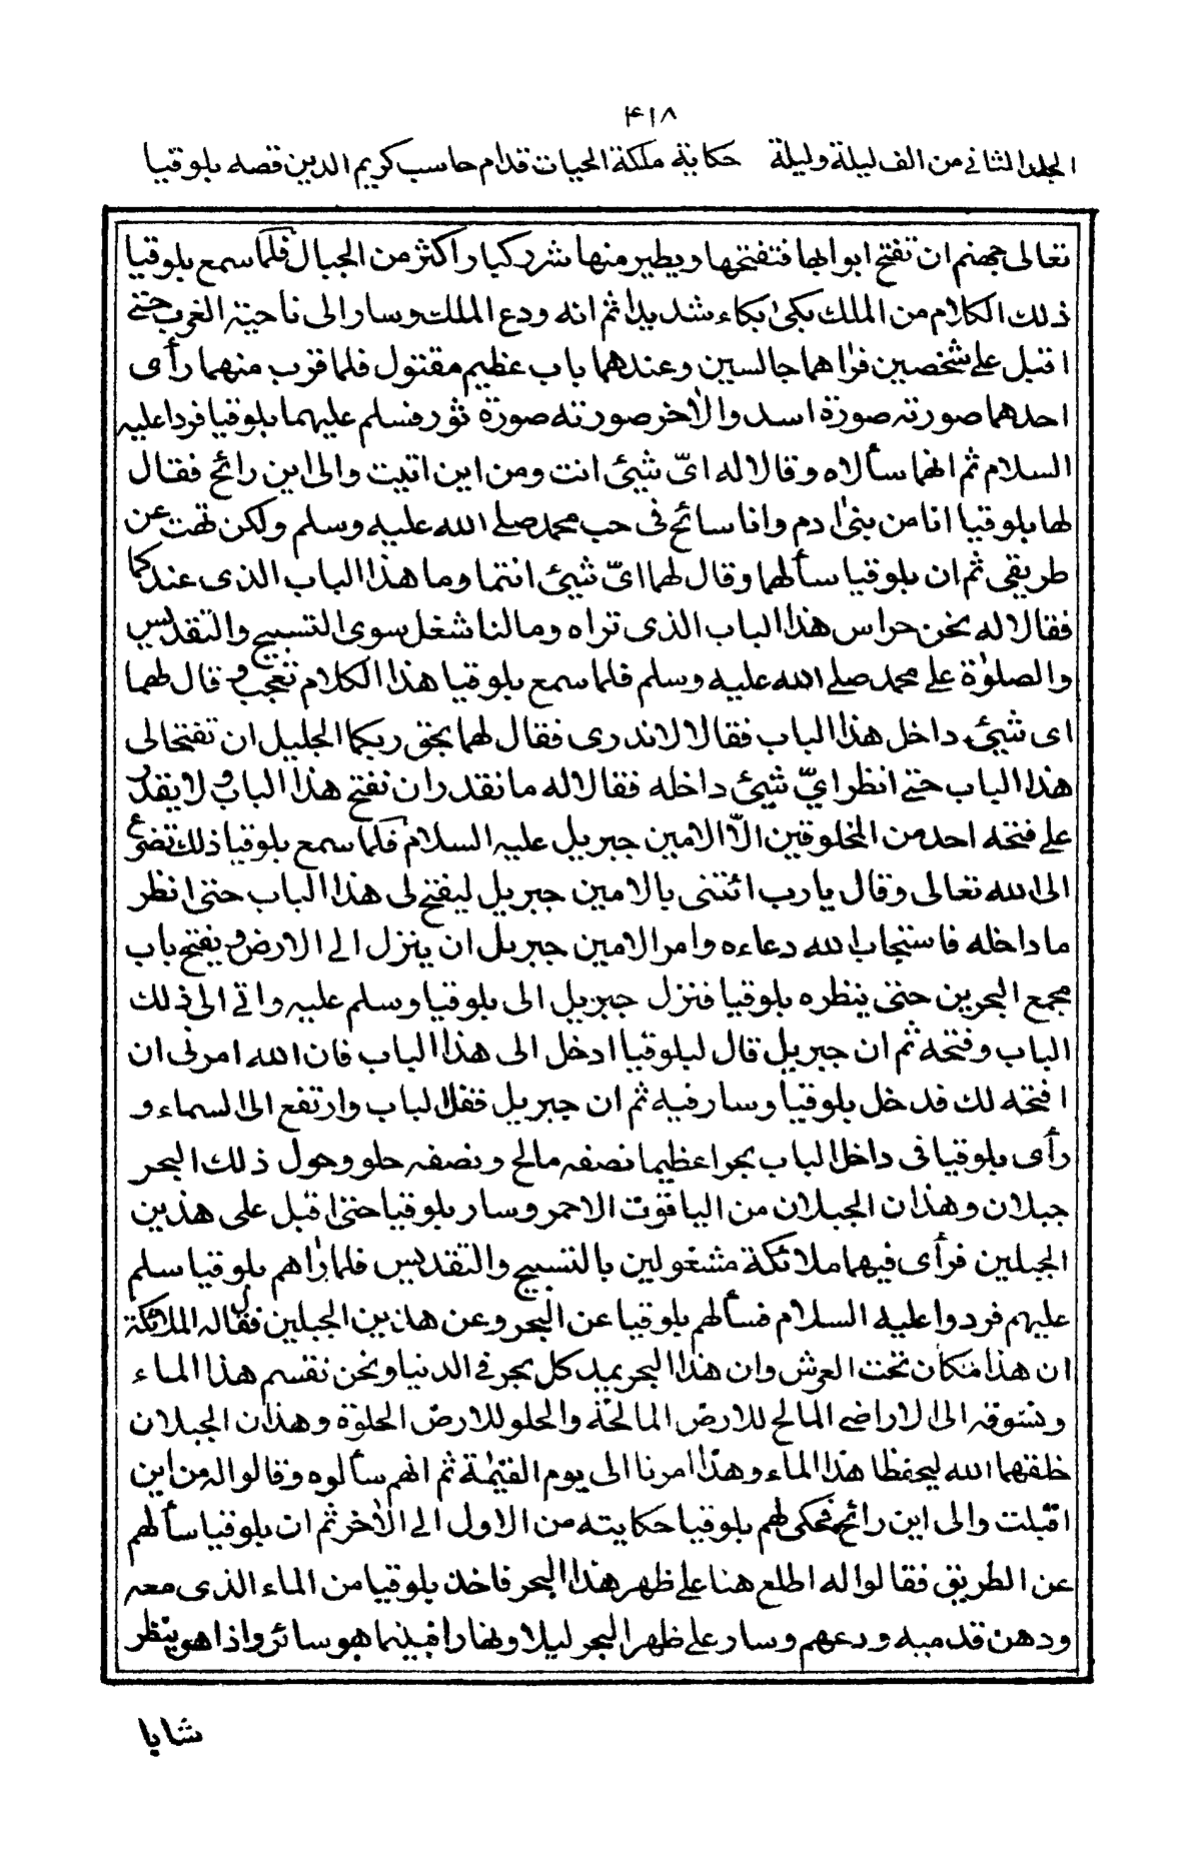 ۴۱۸
الجلد الثاني من الف ليلة وليلة حكاية ملكة الحيات قدام حاسب كريم الدين قصه بلوقيا
تعالى جهنم ان تفتح ابوابها فتفتحها ويطير منها شرر كبار اكثر من الجبال فلما سمع بلوقيا
ذلك الكلام من الملك بكى بكاء شديدا ثم انه ودع الملك وسار الى ناحية الغرب حتى
اقبل على شخصين فراٰهما جالسين وعندهما باب عظيم مقتول فلما قرب منهما رأى
احدهما صورته صورة اسد والاٰخر صورته صورة ثور فسلم عليهما بلوقيا فردا عليه
السلام ثم انهما سألاه وقالا له اىّ شيئ انت ومن اين اتيت والى اين رائح فقال
لها بلوقيا انا من بنى اٰدم وانا سائح فى حب محمد صلى الله عليه وسلم ولكن تهت عن
طريقى ثم ان بلوقيا سألهما وقال لهما اىّ شيئ انتما وما هذا الباب الذى عندكما
فقالا له نحن حراس هذا الباب الذى تراه وما لنا شغل سوى التسبيح والتقديس
والصلوٰة على محمد صلى الله عليه وسلم فلما سمع بلوقيا هذا الكلام تعجب وقال لهما
اى شيئ داخل هذا الباب فقالا لا ندرى فقال لهما بحق ربكما الجليل ان تفتحا لى
هذا الباب حتى انظر ايّ شيئ داخله فقالا له ما نقدر ان نفتح هذا الباب ولا يقدر
على فتحه احد من المخلوقين الاّ الامين جبريل عليه السلام فلما سمع بلوقيا ذلك تضرع
الى الله تعالى وقال يا رب ائتنى بالامين جبريل ليفتح لى هذا الباب حتى انظر
ما داخله فاستجاب الله دعاءه وامر الامين جبريل ان ينزل الى الارض ويفتح باب
مجمع البحرين حتى ينظره بلوقيا فنزل جبريل الى بلوقيا وسلم عليه واتى الى ذلك
الباب وفتحه ثم ان جبريل قال لبلوقيا ادخل الى هذا الباب فان الله امرنى ان
افتحه لك فدخل بلوقيا وسار فيه ثم ان جبريل قفل الباب وارتفع الى السماء و
رأى بلوقيا فى داخل الباب بحرا عظيما نصفه مالح ونصفه حلو وحول ذلك البحر
جبلان وهذان الجبلان من الياقوت الاحمر وسار بلوقيا حتى اقبل على هذين
الجبلين فرأى فيهما ملائكة مشغولين بالتسبيح والتقديس فلما راٰهم بلوقيا سلم
عليهم فردوا عليه السلام فسألهم بلوقيا عن البحر وعن هاذين الجبلين فقال له الملائكة
ان هذا مكان تحت العرش وان هذا البحر يمد كل بحر فى الدنيا ونحن نقسم هذا الماء
ونسوقه الى الاراضى المالح للارض المالحة والحلو للارض الحلوة وهذان الجبلان
خلقهما الله ليحفظا هذا الماء وهذا امرنا الى يوم القيٰمة ثم انهم سألوه وقالوا له من اين
اقبلت والى اين رائح فحكى لهم بلوقيا حكايته من الاول الى الاٰخر ثم ان بلوقيا سألهم
عن الطريق فقالوا له اطلع هنا على ظهر هذا البحر فاخذ بلوقيا من الماء الذى معه
ودهن قدميه وودعهم وسار على ظهر البحر ليلا ونهارا فبينما هو سائر واذا هو ينظر
شابا